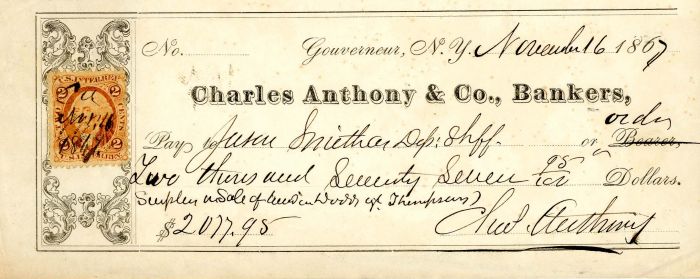 No. Gouverneur, N. Y. November 16 1867
U.S. INTER. REV.
2 2
CENTS
Charles Anthony & Co., Bankers,
order
Pay to Smith as Dep. Shff. or Bearer
Two thousand Seventy Seven 95/100 Dollars.
Surplus on Sale of vs Thompson)
$2077.95 Chas. Anthony